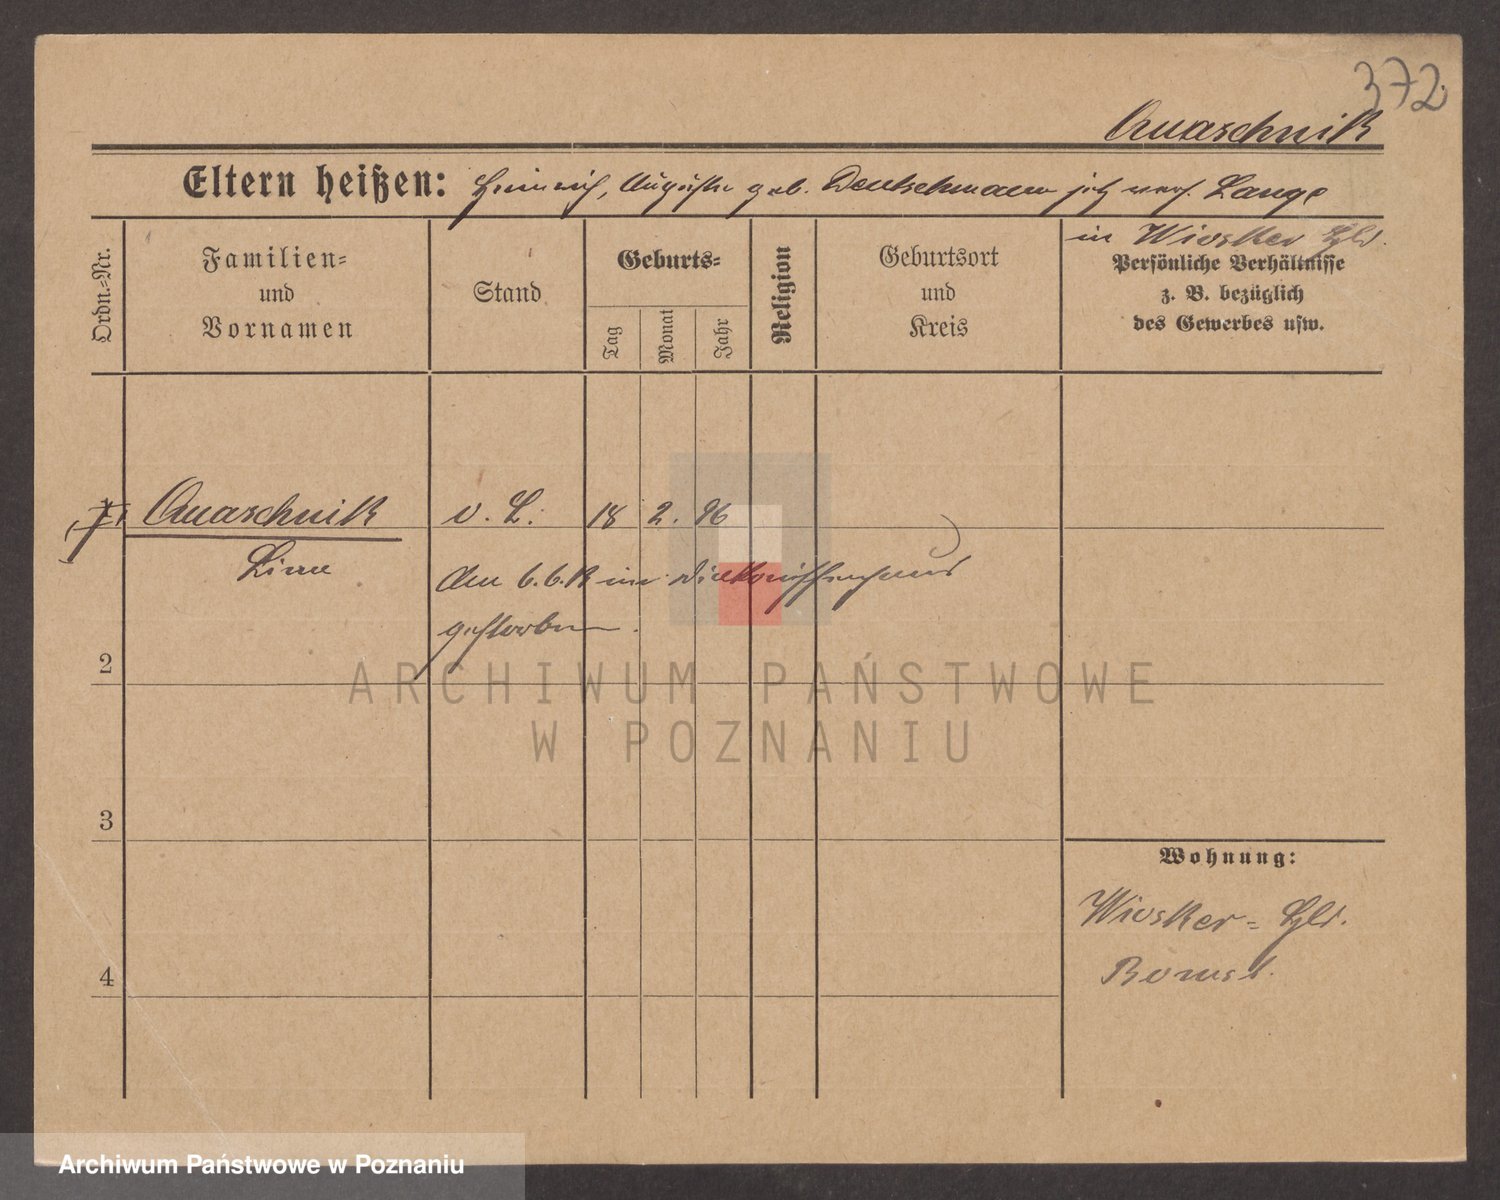 372
Quaschnik
Eltern heißen: Heinrich, Auguste geb. Deutschmann jetz verh. Lange
in Wiosker Hld.
Ordn.-Nr.
Familien-
und
Vornamen
Stand
Geburts-
Tag
Monat
Jahr
Religion
Geburtsort
und
Kreis
Persönliche Verhältnisse
z. B. bezüglich
des Gewerbes usw.
Quaschnik v. L. 18 2. 96
Line
am 6.6. im Diakonissenhaus
gestorben.
2
3
4
Wohnung:
Wiosker- Hld.
Bomst.
ARCHIWUM PAŃSTWOWE
W POZNANIU
Archiwum Państwowe w Poznaniu